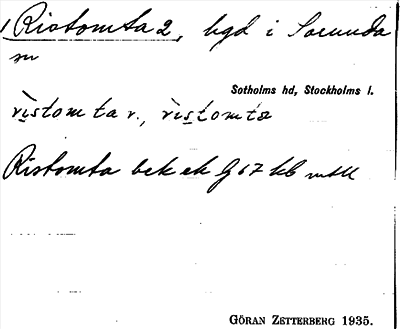 Ristomta 2, bgd i Sorunda
sn
Sotholms hd, Stockholms l.
ristomta r., ristomta
Ristomta bek ek G 67 kb mtll
GÖRAN ZETTERBERG 1935.